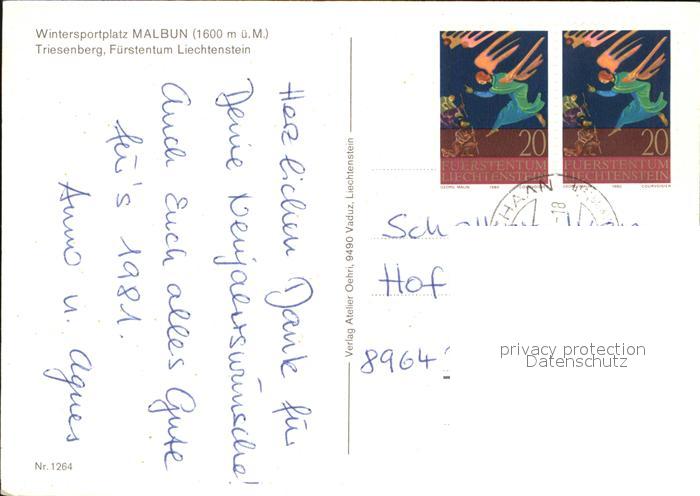 Wintersportplatz MALBUN (1600 m ü.M.)
Triesenberg, Fürstentum Liechtenstein
Herzlichen Dank für
Deine Neujahrswünsche!
Auch Euch alles Gute
für's 1981.
Anno u. Agnes
Nr. 1264
Verlag Atelier Oehri, 9490 Vaduz, Liechtenstein
20
FUERSTENTUM
LIECHTENSTEIN
GEORG MALIN 1980
20
FUERSTENTUM
LIECHTENSTEIN
1980 COURVOISIER
HAAN
-18
Hof
8964
privacy protection
Datenschutz